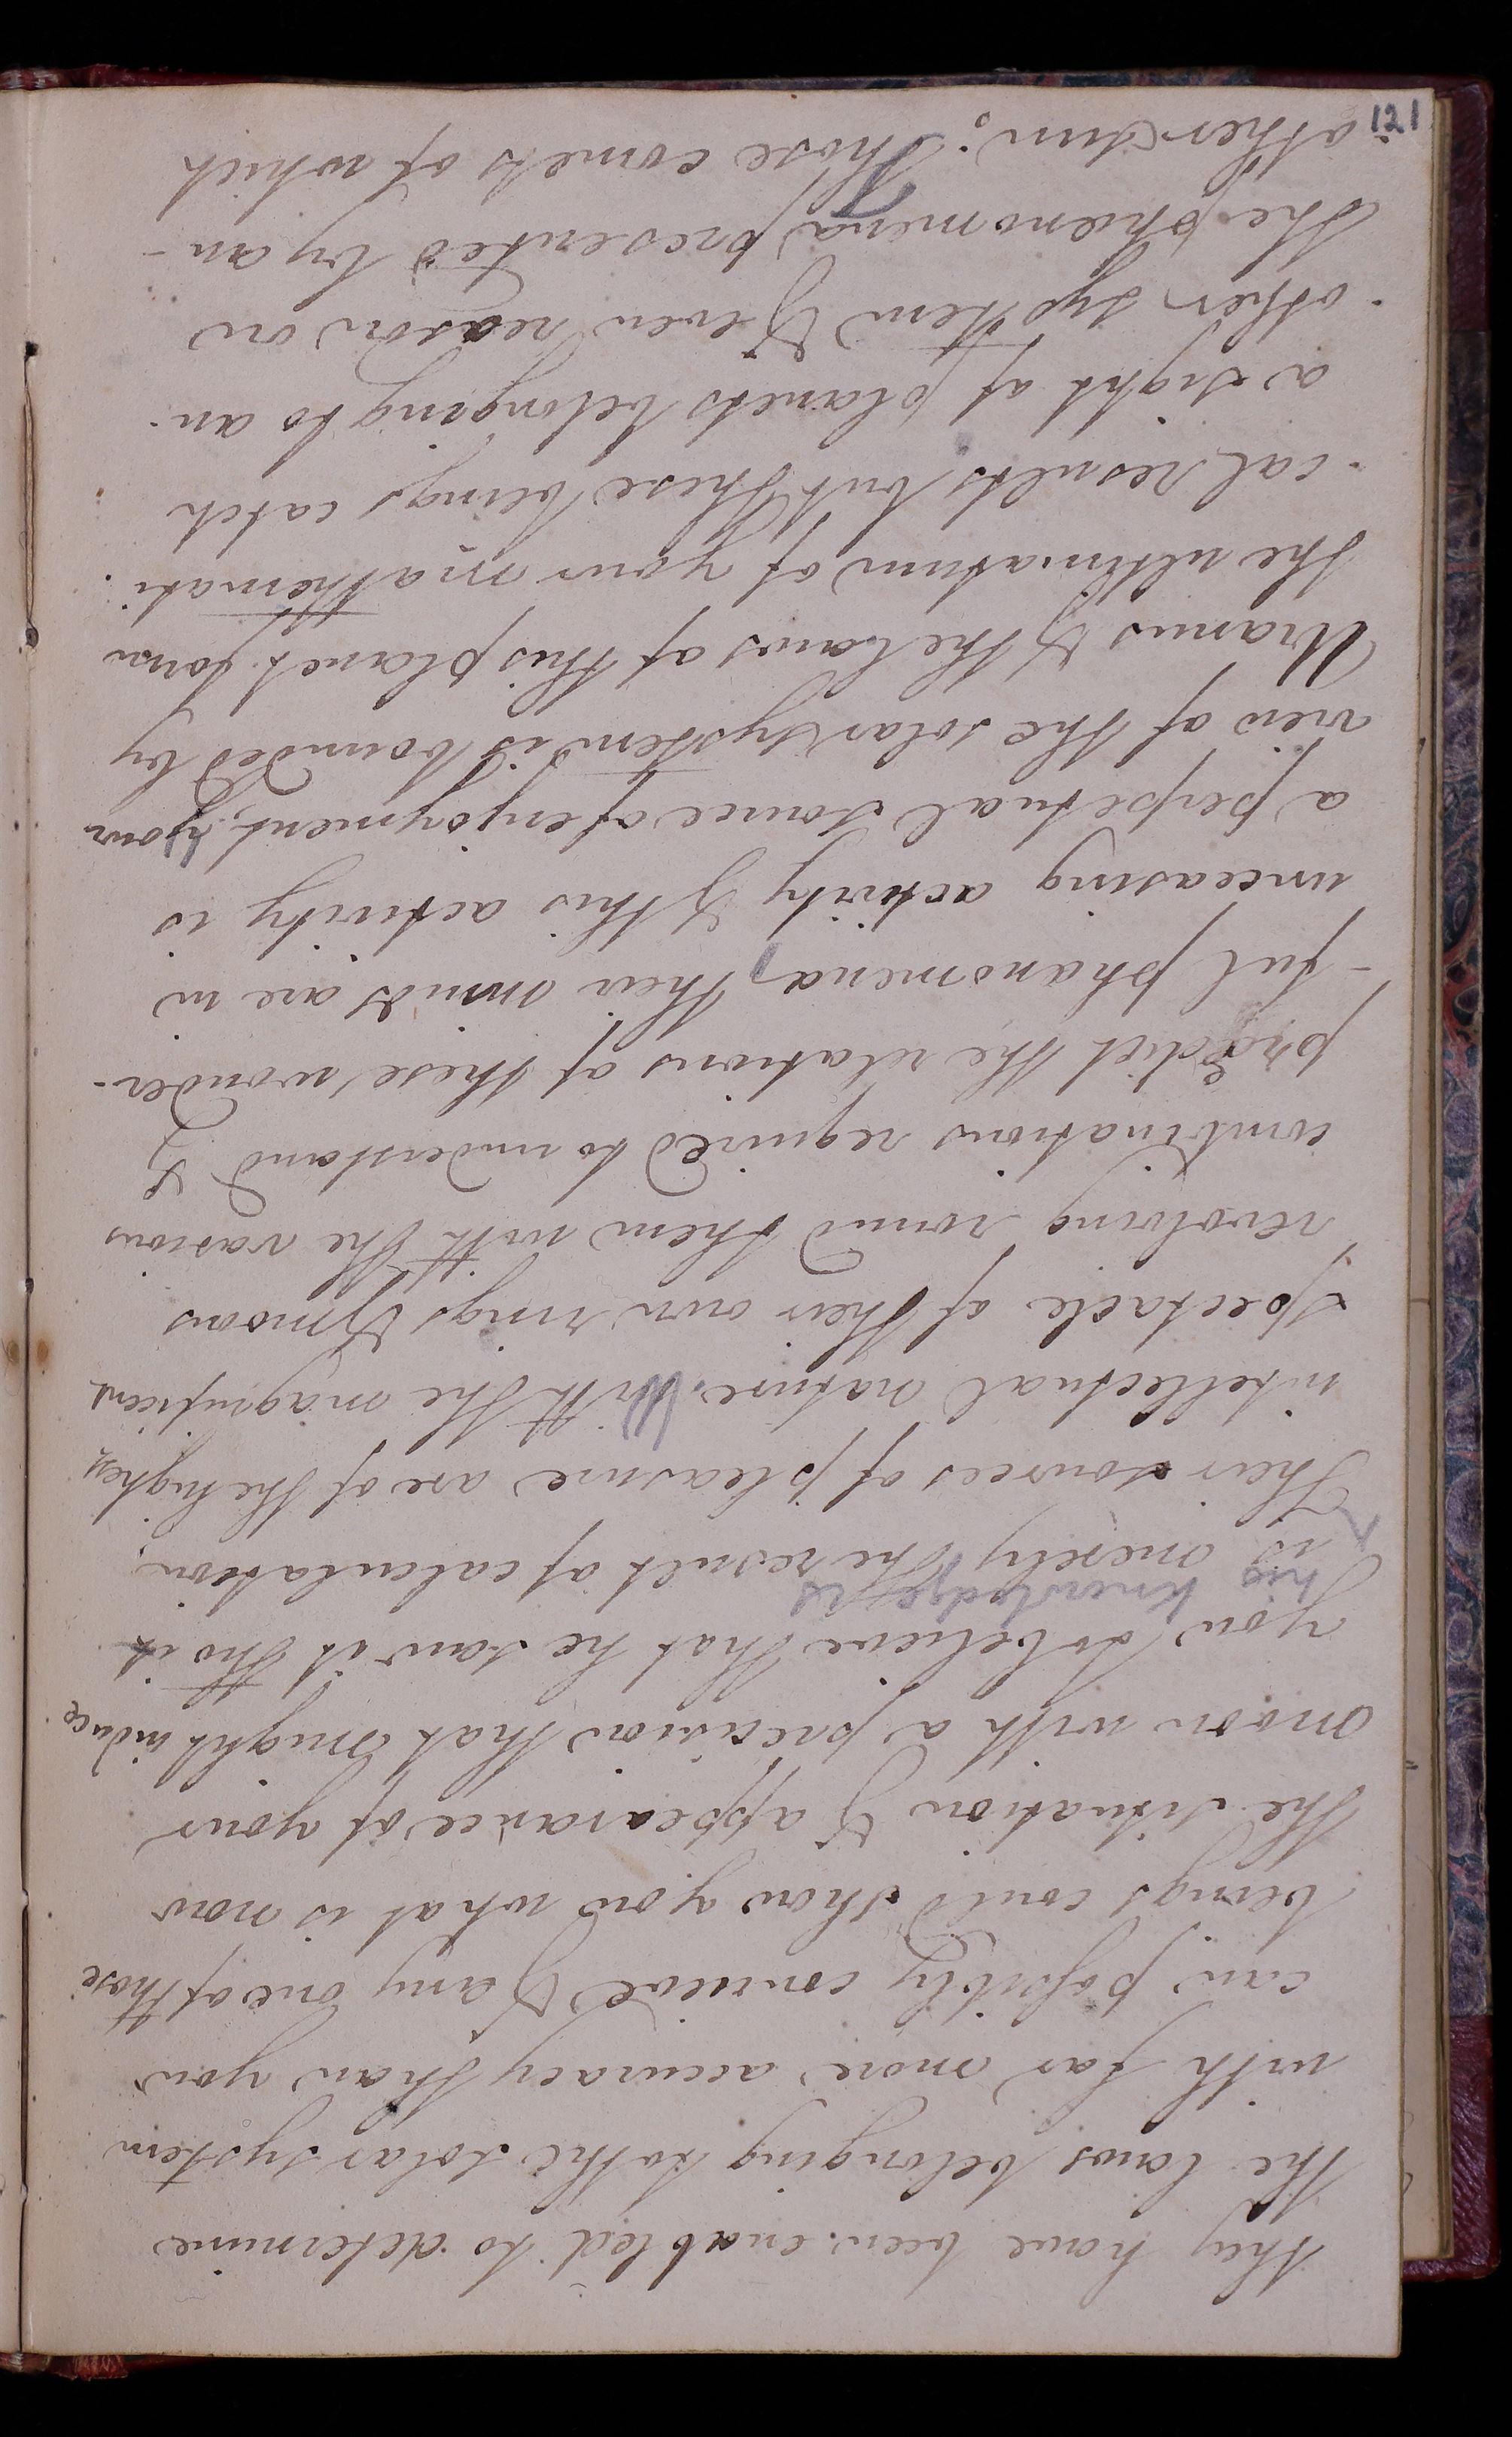 121
they have been enabled to determine
the laws belonging to the solar system
with far more accuracy than you
can possibly conceive & any one of those
beings could show you what is now
the situation & appearance of your
moon with a precision that might induce
you to believe that he saw it tho it
his knowledge is
is merely the result of calculation.
Their sources of pleasure are of the highest
intellectual nature. With the magnificent
spectacle of their own rings & moons
revolving round them with the various
combinations required to understand &
predict the relations of these wonder-
-ful phænomena, their minds are in
unceasing activity & this activity is
a perpetual source of enjoyment. Your
view of the solar system is bounded by
Uranus & the laws of this planet form
the ultimatum of your mathemati-
-cal results, but these beings catch
a sight of planets belonging to an-
-other system & even reason on
the phænomena presented by an-
-other sun; Those comets of which